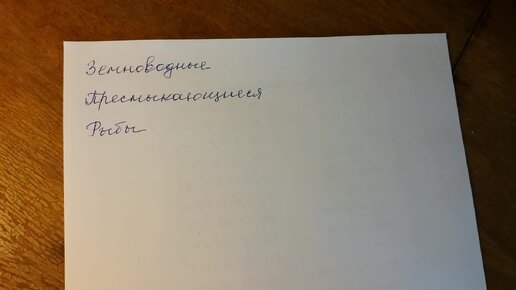 Земноводные
Пресмыкающиеся
Рыбы